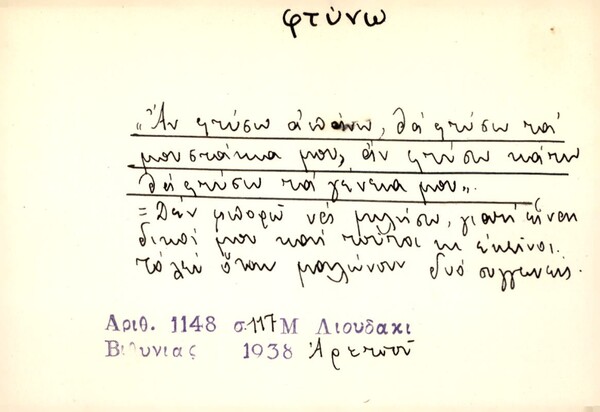 φτύνω
„Ἄν φτύσω ἀπάνω, θά φτύσω τά
μουστάκια μου, ἄν φτύσω κάτω
θά φτύσω τά γένεια μου".
= Δέν μπορῶ νά μιλήσω, γιατί εἶναι
δικοί μου καί τοῦτοι κι ἐκεῖνοι.
τό λέν ὅταν μαλώνουν δυό συγγενεῖς.
Αριθ. 1148 σ.117 Μ Λιουδακι
Βιθυνιας 1938 Ἀρετσοῦ